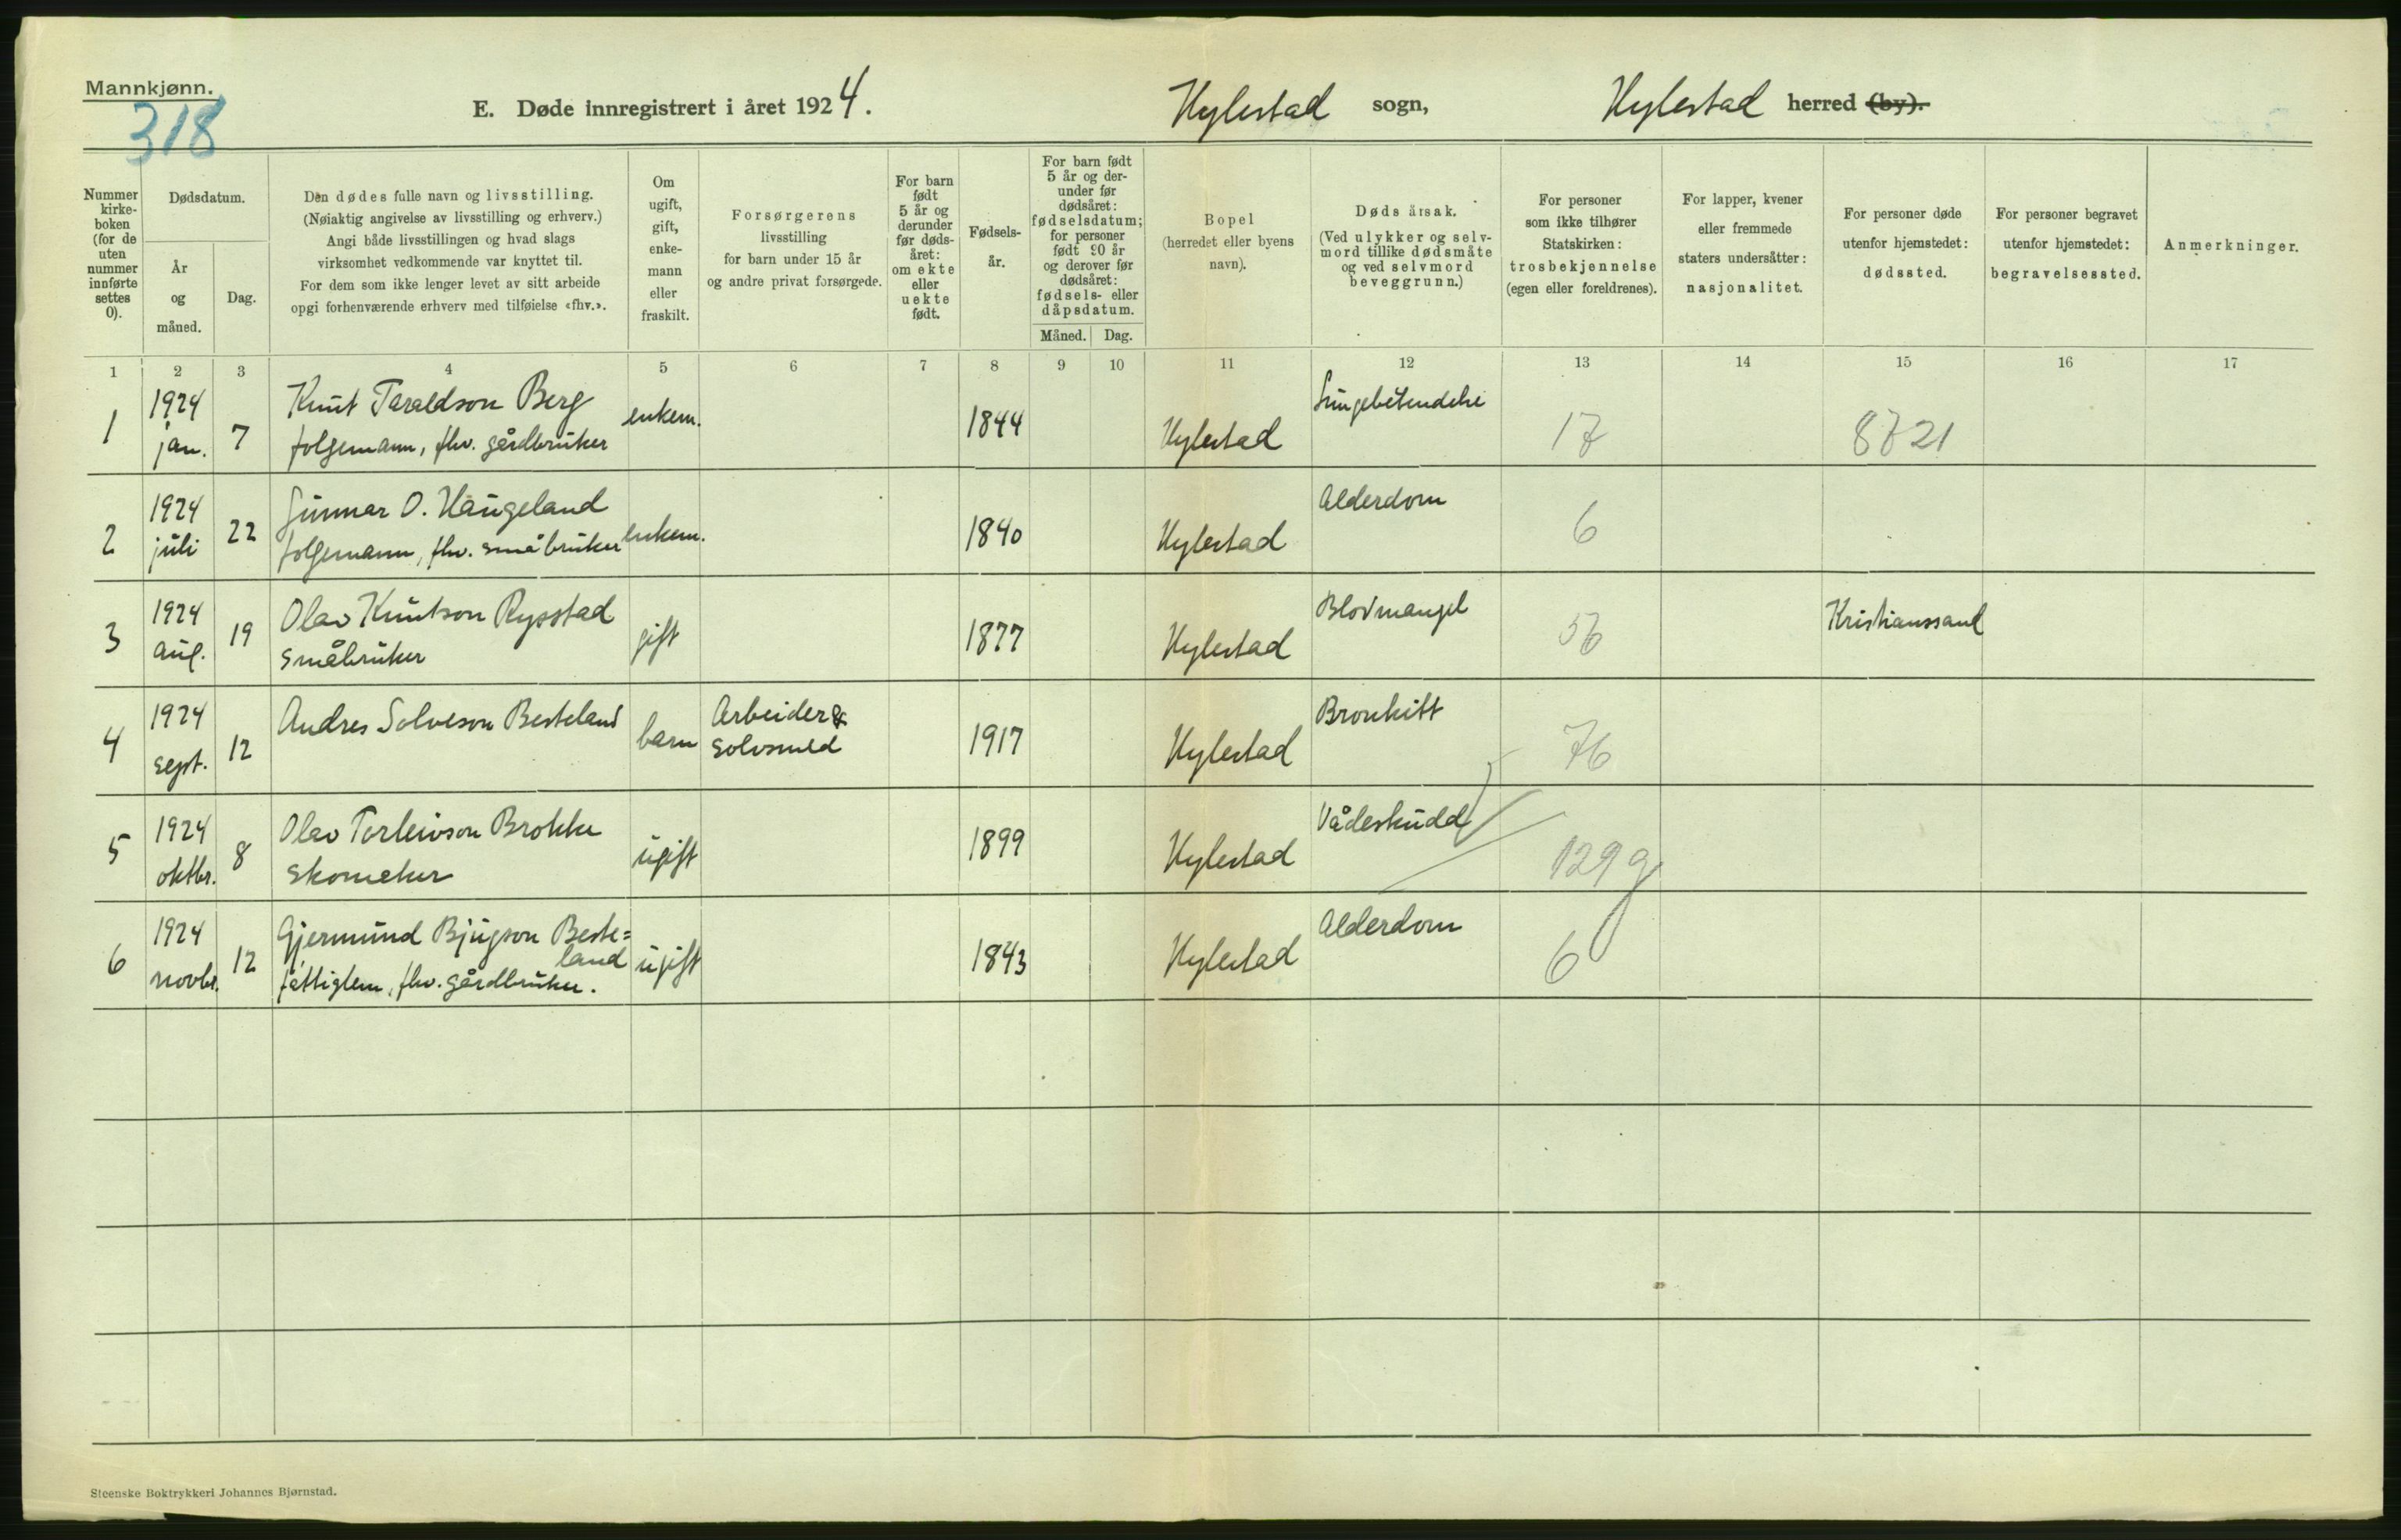 Mannkjønn.
318
E. Døde innregistrert i året 1924.
Hylestad sogn,
Hylestad herred (by).
Nummer kirke-boken (for de uten nummer innførte settes 0).
Dødsdatum.
År og måned.
Dag.
Den dødes fulle navn og livsstilling.
(Nøiaktig angivelse av livsstilling og erhverv.)
Angi både livsstillingen og hvad slags
virksomhet vedkommende var knyttet til.
For dem som ikke lenger levet av sitt arbeide
opgi forhenværende erhverv med tilføielse «fhv.».
Om ugift, gift, enke-mann eller fraskilt.
Forsørgerens
livsstilling
for barn under 15 år
og andre privat forsørgede.
For barn født 5 år og derunder før døds-året: om ekte eller uekte født.
Fødsels-år.
For barn født 5 år og der-under før dødsåret: fødselsdatum; for personer født 90 år og derover før dødsåret: fødsels- eller dåpsdatum.
Måned.
Dag.
Bopel
(herredet eller byens
navn).
Dødsårsak.
(Ved ulykker og selv-
mord tillike dødsmåte
og ved selvmord
beveggrunn.)
For personer
som ikke tilhører
Statskirken:
trosbekjennelse
(egen eller foreldrenes).
For lapper, kvener
eller fremmede
staters undersåtter:
nasjonalitet.
For personer døde
utenfor hjemstedet:
dødssted.
For personer begravet
utenfor hjemstedet:
begravelsessted.
Anmerkninger.
1 2 3 4 5 6 7 8 9 10 11 12 13 14 15 16 17
1 1924 jan. 7 Knut Taraldson Berg enkem. 1844 Hylestad Lungebetendelse 17 8721
folgemann, fhv. gårdbruker
2 1924 juli 22 Gunnar O. Haugeland enkem. 1840 Hylestad Alderdom 6
folgemann, fhv. småbruker
3 1924 aug. 19 Olav Knutson Rysstad gift 1877 Hylestad Blodmangel Kristianssand
småbruker
4 1924 sept. 12 Andres Solveson Besteland barn Arbeider & 1917 Hylestad Bronkitt 76
solvsmed
5 1924 oktbr. 8 Olav Torleivson Brokke ugift 1899 Hylestad Vådeskudd 129 g
skomaker
6 1924 novbr. 12 Gjermund Bjugson Beste=
land ugift 1843 Hylestad Alderdom 6
fattiglem, fhv. gårdbruker.
Steenske Boktrykkeri Johannes Bjørnstad.